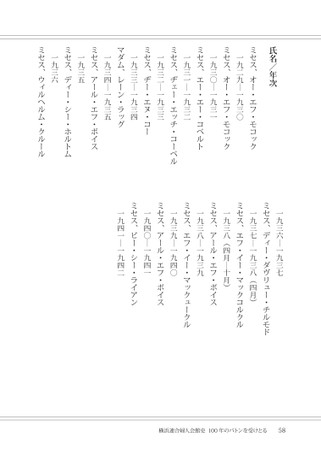 氏名／年次
ミセス、オー・エフ・モコック
一九二九―一九三〇
ミセス、オー・エフ・モコック
一九三〇―一九三一
ミセス、エー・エー・コベルト
一九三一―一九三二
ミセス、ヂェー・エッチ・コーベル
一九三二―一九三三
ミセス、ヂー・エヌ・コー
一九三三―一九三四
マダム、レーン・ラッグ
一九三四―一九三五
ミセス、アール・エフ・ボイス
一九三五
ミセス、ディー・シー・ホルトム
一九三六
ミセス、ウィルヘルム・クルール
一九三六―一九三七
ミセス、ディー・ダヴリュー・チルモド
一九三七―一九三八（四月）
ミセス、エフ・イー・マックコルクル
一九三八（四月―十月）
ミセス、アール・エフ・ボイス
一九三八―一九三九
ミセス、エフ・イー・マックュークル
一九三九―一九四〇
ミセス、アール・エフ・ボイス
一九四〇―一九四一
ミセス、ビー・シー・ライアン
一九四一―一九四二
横浜連合婦人会館史 100年のバトンを受けとる 58